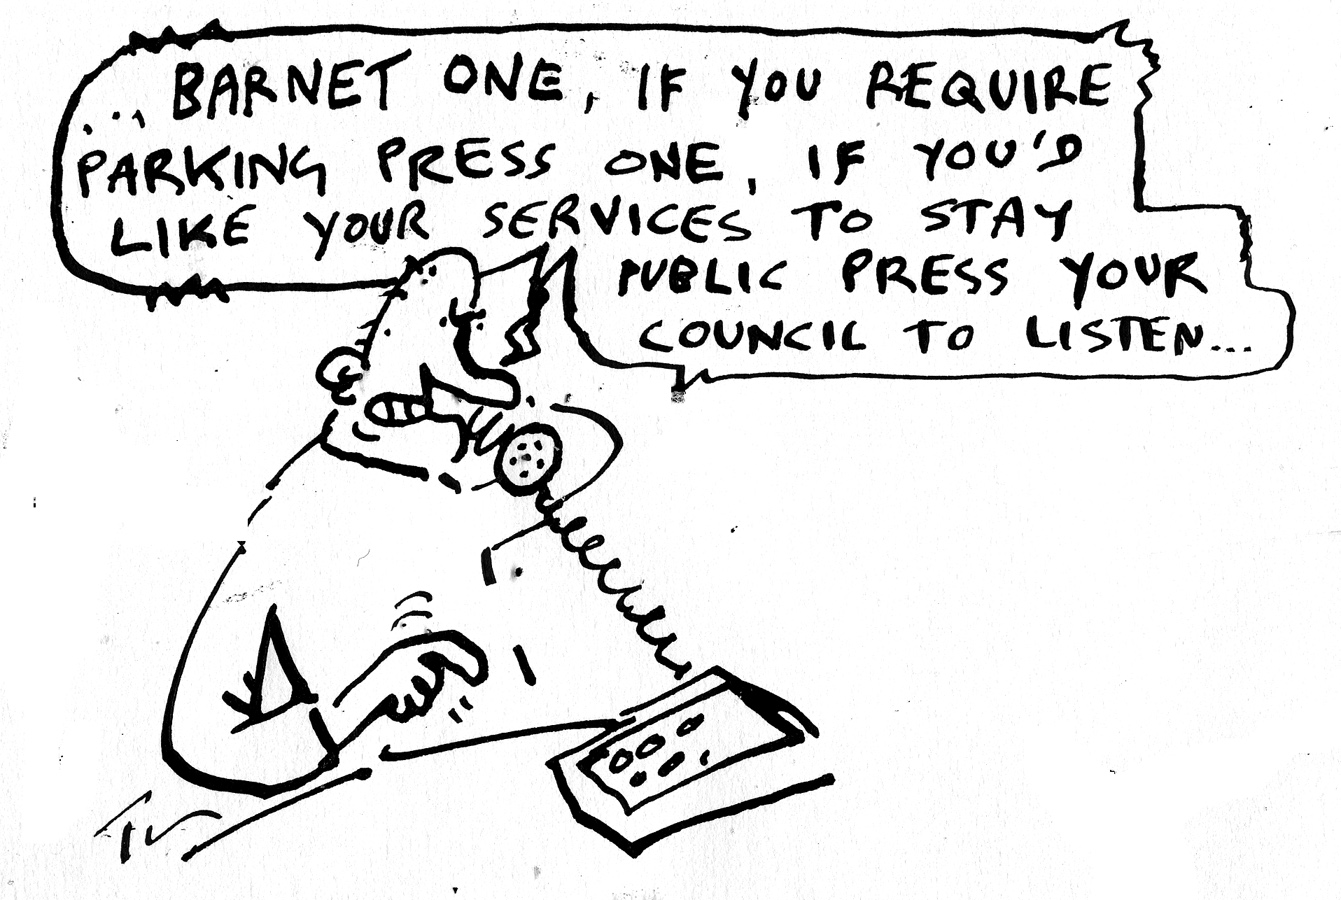 ... BARNET ONE, IF YOU REQUIRE
PARKING PRESS ONE, IF YOU'D
LIKE YOUR SERVICES TO STAY
PUBLIC PRESS YOUR
COUNCIL TO LISTEN...